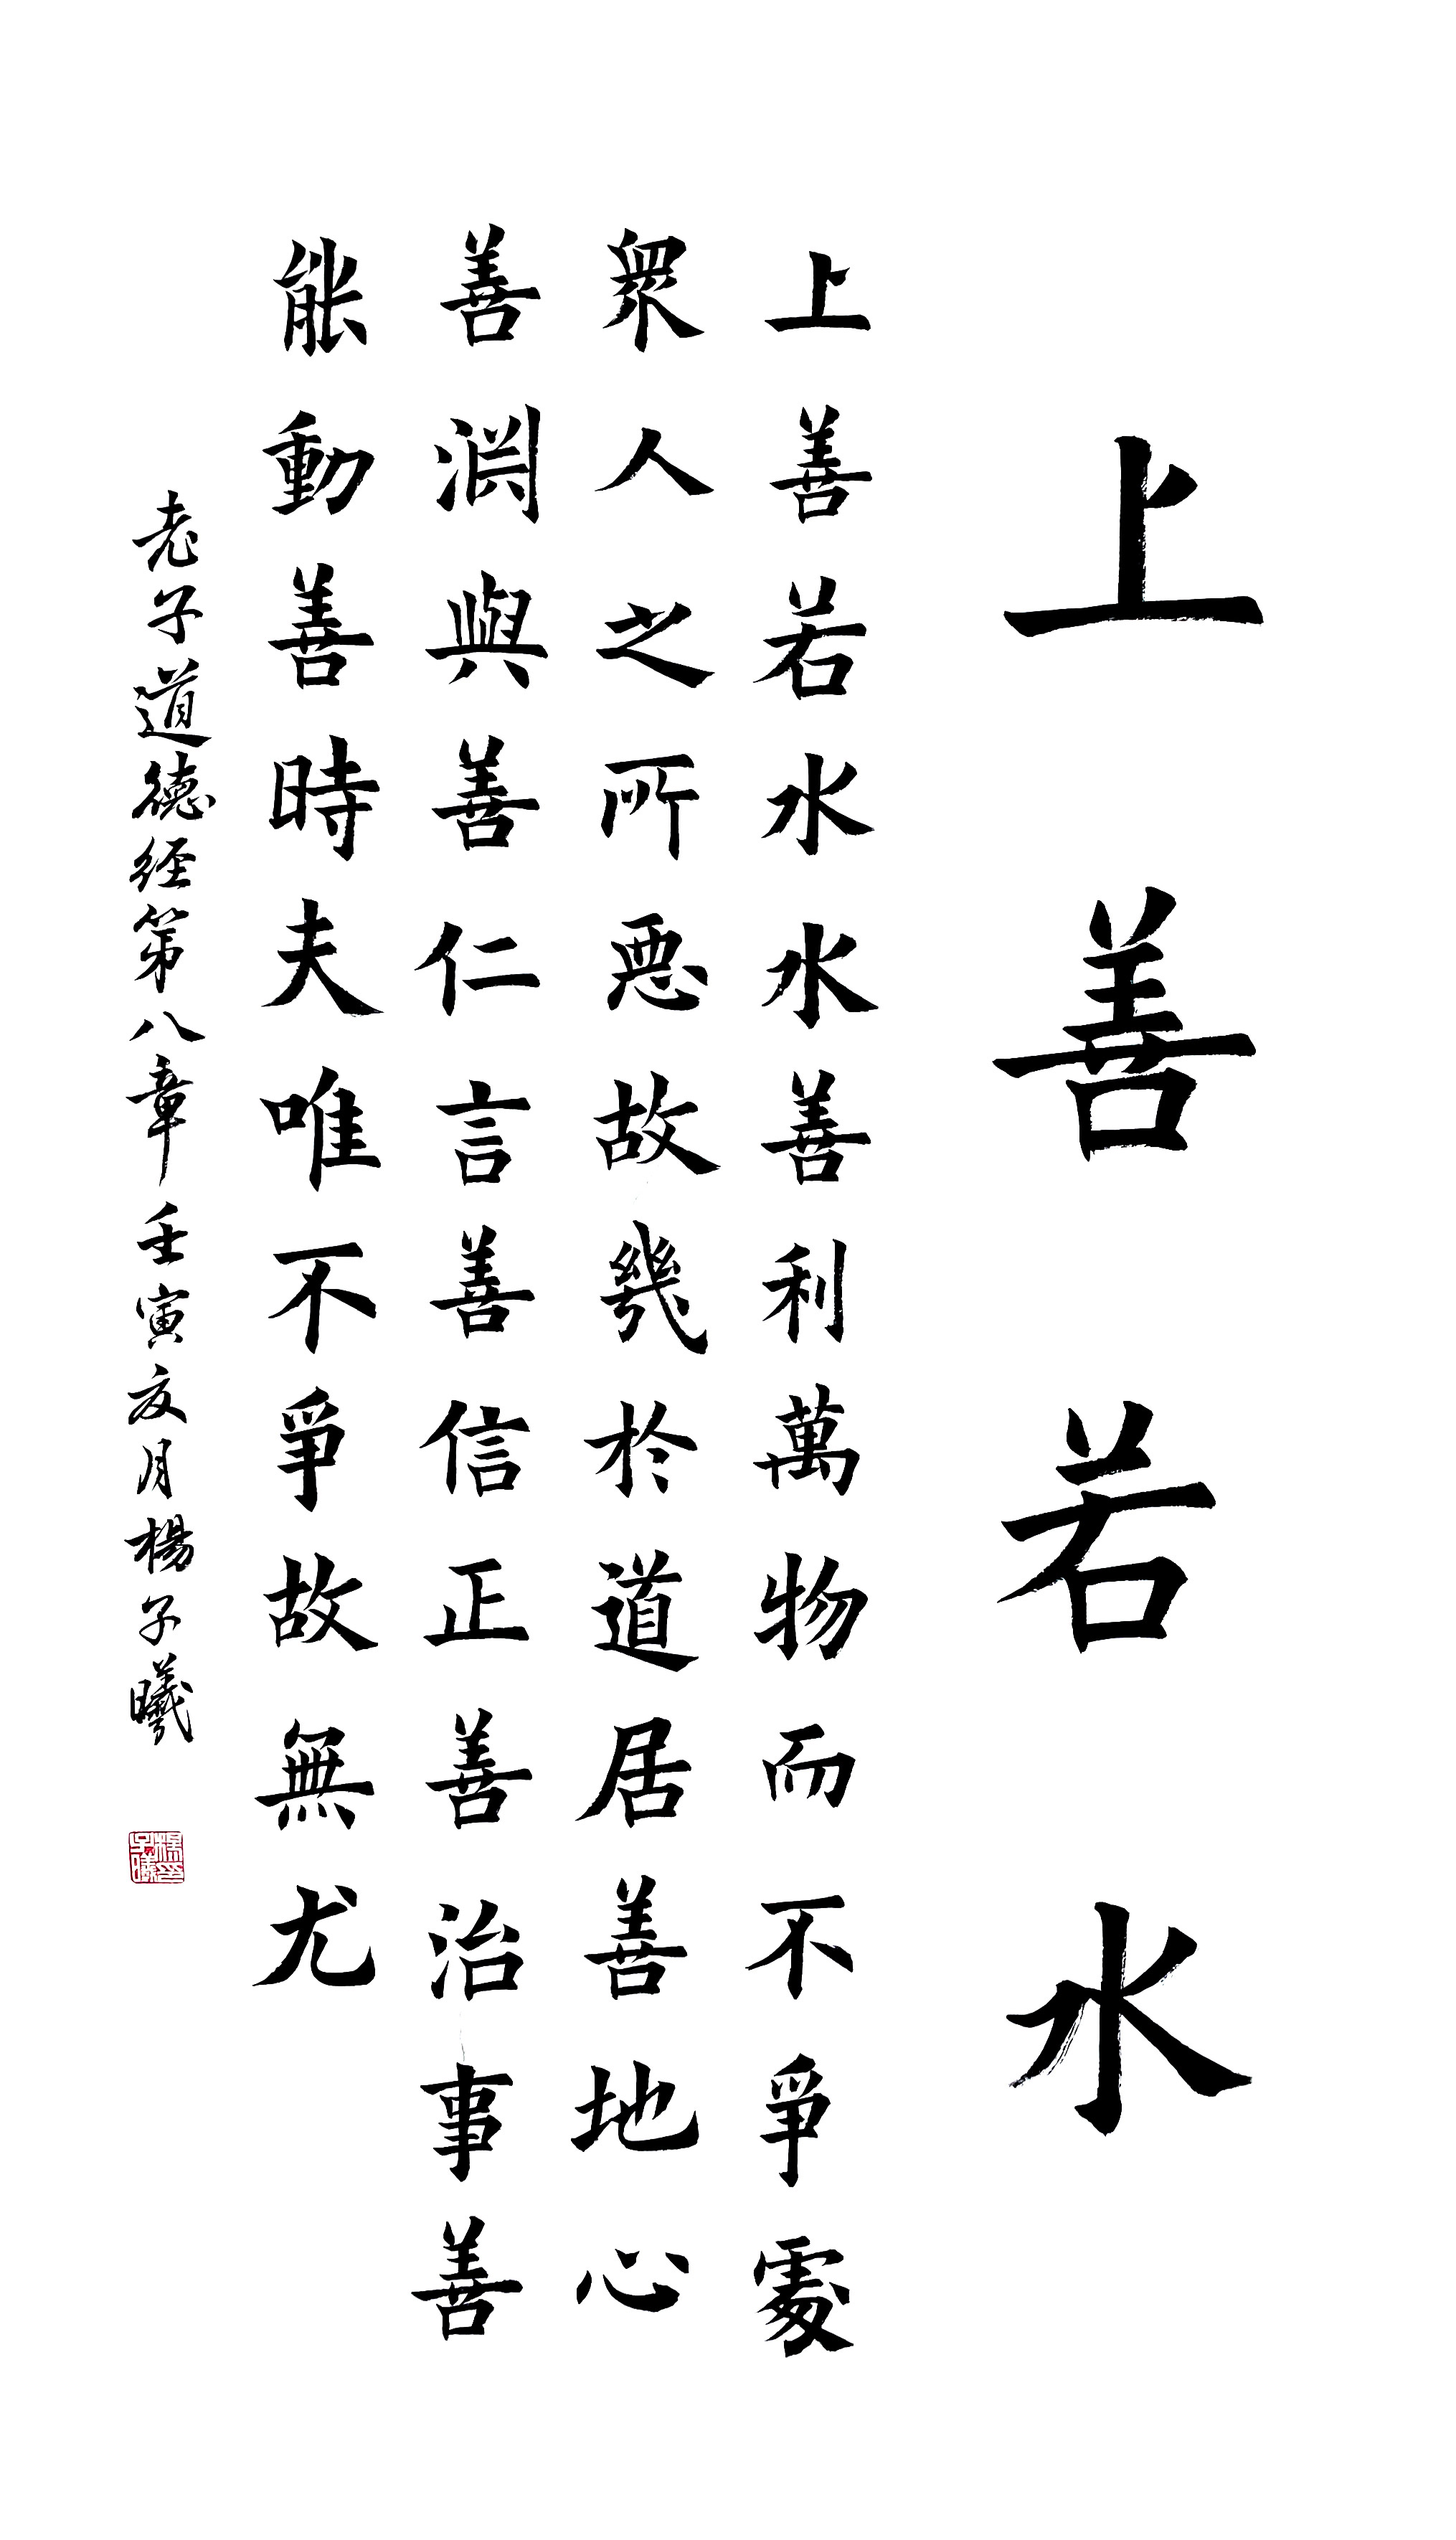 上善若水
上善若水水善利萬物而不爭處
眾人之所惡故幾於道居善地心
善淵與善仁言善信正善治事善
能動善時夫唯不爭故無尤
老子道德经第八章壬寅夏月楊子曦
楊子曦印